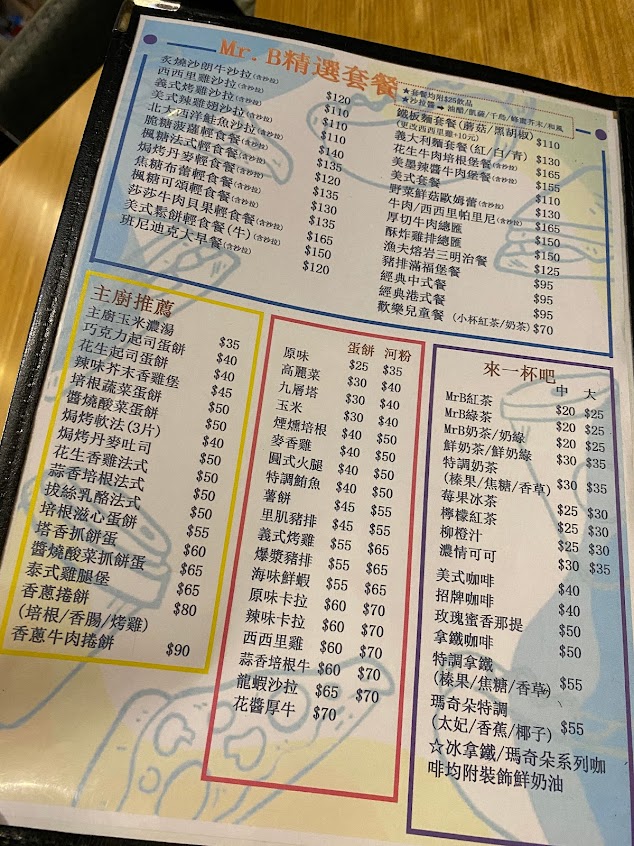 Mr. B精選套餐
★套餐均附$25飲品
★沙拉醬➡油醋/凱薩/千島/蜂蜜芥末/和風
炙燒沙朗牛沙拉(含沙拉) $120
西西里雞沙拉(含沙拉) $110
義式烤雞沙拉(含沙拉) $110
美式辣雞翅沙拉(含沙拉) $110
北大西洋鮭魚沙拉(含沙拉) $140
脆糖菠蘿輕食餐(含沙拉) $135
楓糖法式輕食餐(含沙拉) $120
焗烤丹麥輕食餐(含沙拉) $135
焦糖布蕾輕食餐(含沙拉) $130
楓糖可頌輕食餐(含沙拉) $135
莎莎牛肉貝果輕食餐(含沙拉) $165
美式鬆餅輕食餐(牛)(含沙拉) $150
班尼迪克大早餐(含沙拉) $120
鐵板麵套餐(蘑菇/黑胡椒) $110
(更改西西里雞+10元)
義大利麵套餐(紅/白/青) $130
花生牛肉培根堡餐(含沙拉) $165
美墨辣醬牛肉堡餐(含沙拉) $155
美式套餐 $110
野菜鮮菇歐姆蕾(含沙拉) $130
牛肉/西西里帕里尼(含沙拉) $165
厚切牛肉總匯 $150
酥炸雞排總匯 $150
漁夫熔岩三明治餐 $125
豬排滿福堡餐 $95
經典中式餐 $95
經典港式餐 $95
歡樂兒童餐 (小杯紅茶/奶茶) $70
主廚推薦
主廚玉米濃湯 $35
巧克力起司蛋餅 $40
花生起司蛋餅 $40
辣味芥末香雞堡 $45
培根蔬菜蛋餅 $50
醬燒酸菜蛋餅 $50
焗烤軟法(3片) $40
焗烤丹麥吐司 $50
花生香雞法式 $50
蒜香培根法式 $50
拔絲乳酪法式 $50
培根滋心蛋餅 $55
塔香抓餅蛋 $60
醬燒酸菜抓餅蛋 $65
泰式雞腿堡 $65
香蔥捲餅 $80
(培根/香腸/烤雞)
香蔥牛肉捲餅 $90
蛋餅 河粉
原味 $25 $35
高麗菜 $30 $40
九層塔 $30 $40
玉米 $30 $40
煙燻培根 $40 $50
麥香雞 $40 $50
圓式火腿 $40 $50
特調鮪魚 $40 $50
薯餅 $45 $55
里肌豬排 $45 $55
義式烤雞 $55 $65
爆漿豬排 $55 $65
海味鮮蝦 $55 $65
原味卡拉 $60 $70
辣味卡拉 $60 $70
西西里雞 $60 $70
蒜香培根牛 $60 $70
龍蝦沙拉 $65 $70
花醬厚牛 $70
來一杯吧
中 大
MrB紅茶 $20 $25
MrB綠茶 $20 $25
MrB奶茶/奶綠 $20 $25
鮮奶茶/鮮奶綠 $30 $35
特調奶茶
(榛果/焦糖/香草) $30 $35
莓果冰茶 $25 $30
檸檬紅茶 $25 $30
柳橙汁 $25 $30
濃情可可 $30 $35
美式咖啡 $40
招牌咖啡 $40
玫瑰蜜香那提 $50
拿鐵咖啡 $50
特調拿鐵
(榛果/焦糖/香草) $55
瑪奇朵特調
(太妃/香蕉/椰子) $55
☆冰拿鐵/瑪奇朵系列咖
啡均附裝飾鮮奶油